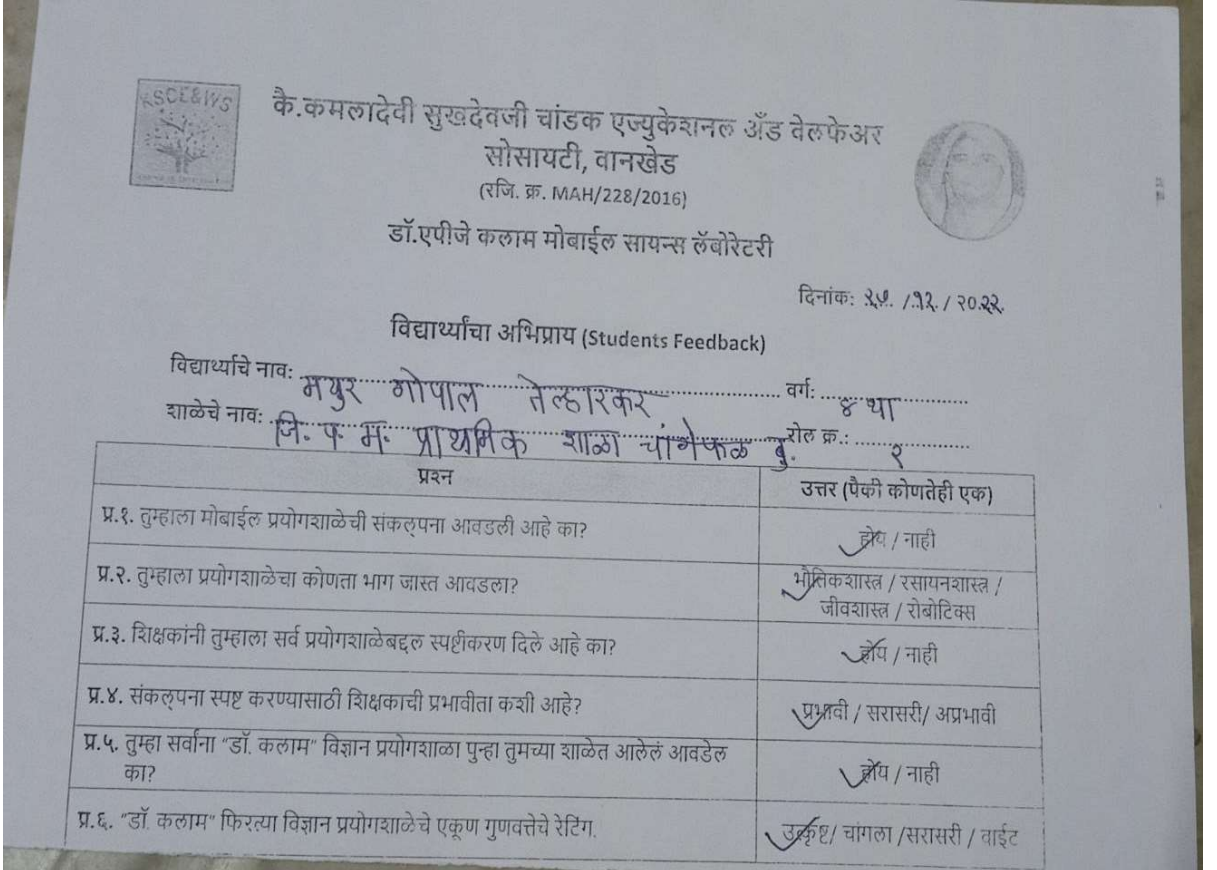 KSCE&WS
कै.कमलादेवी सुखदेवजी चांडक एज्युकेशनल अँड वेलफेअर
सोसायटी, वानखेड
(रजि. क्र. MAH/228/2016)
डॉ.एपीजे कलाम मोबाईल सायन्स लॅबोरेटरी
दिनांक: २५. /१२. / २०२२.
विद्यार्थ्यांचा अभिप्राय (Students Feedback)
विद्यार्थ्याचे नाव: मयुर गोपाल तेल्हारकर वर्ग: ४ था
शाळेचे नाव: जि. प. म. प्राथमिक शाळा चांगेफळ बु. रोल क्र.: २
प्रश्न उत्तर (पैकी कोणतेही एक)
प्र.१. तुम्हाला मोबाईल प्रयोगशाळेची संकल्पना आवडली आहे का? होय / नाही
प्र.२. तुम्हाला प्रयोगशाळेचा कोणता भाग जास्त आवडला? भौतिकशास्त्र / रसायनशास्त्र /
जीवशास्त्र / रोबोटिक्स
प्र.३. शिक्षकांनी तुम्हाला सर्व प्रयोगशाळेबद्दल स्पष्टीकरण दिले आहे का? होय / नाही
प्र.४. संकल्पना स्पष्ट करण्यासाठी शिक्षकाची प्रभावीता कशी आहे? प्रभावी / सरासरी/ अप्रभावी
प्र.५. तुम्हा सर्वांना "डॉ. कलाम" विज्ञान प्रयोगशाळा पुन्हा तुमच्या शाळेत आलेलं आवडेल
का? होय / नाही
प्र.६. "डॉ. कलाम" फिरत्या विज्ञान प्रयोगशाळेचे एकूण गुणवत्तेचे रेटिंग. उत्कृष्ट/ चांगला /सरासरी / वाईट